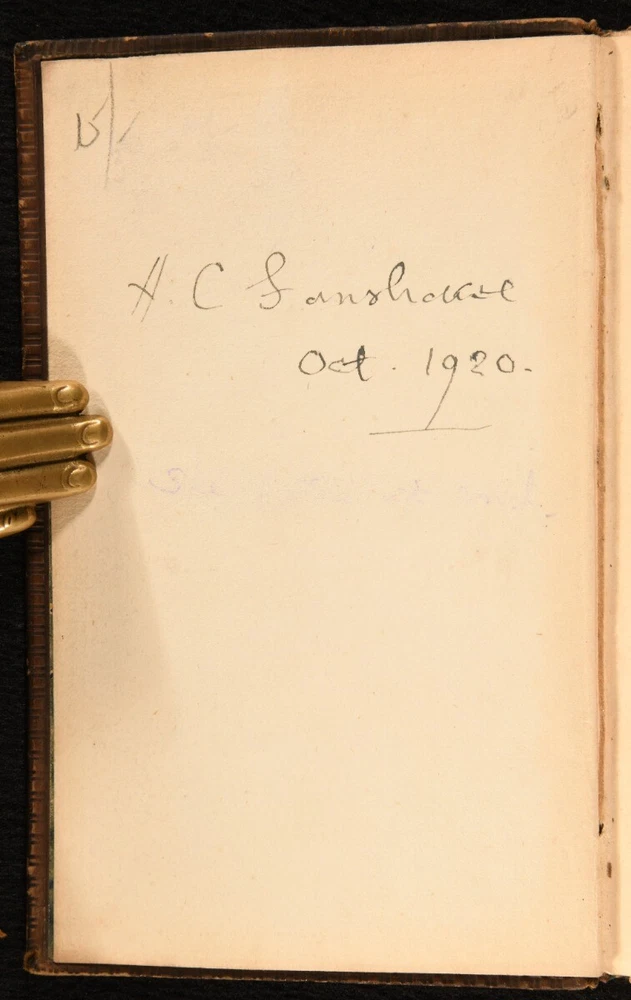 15/-
H. C Fanshawe
Oct. 1920.